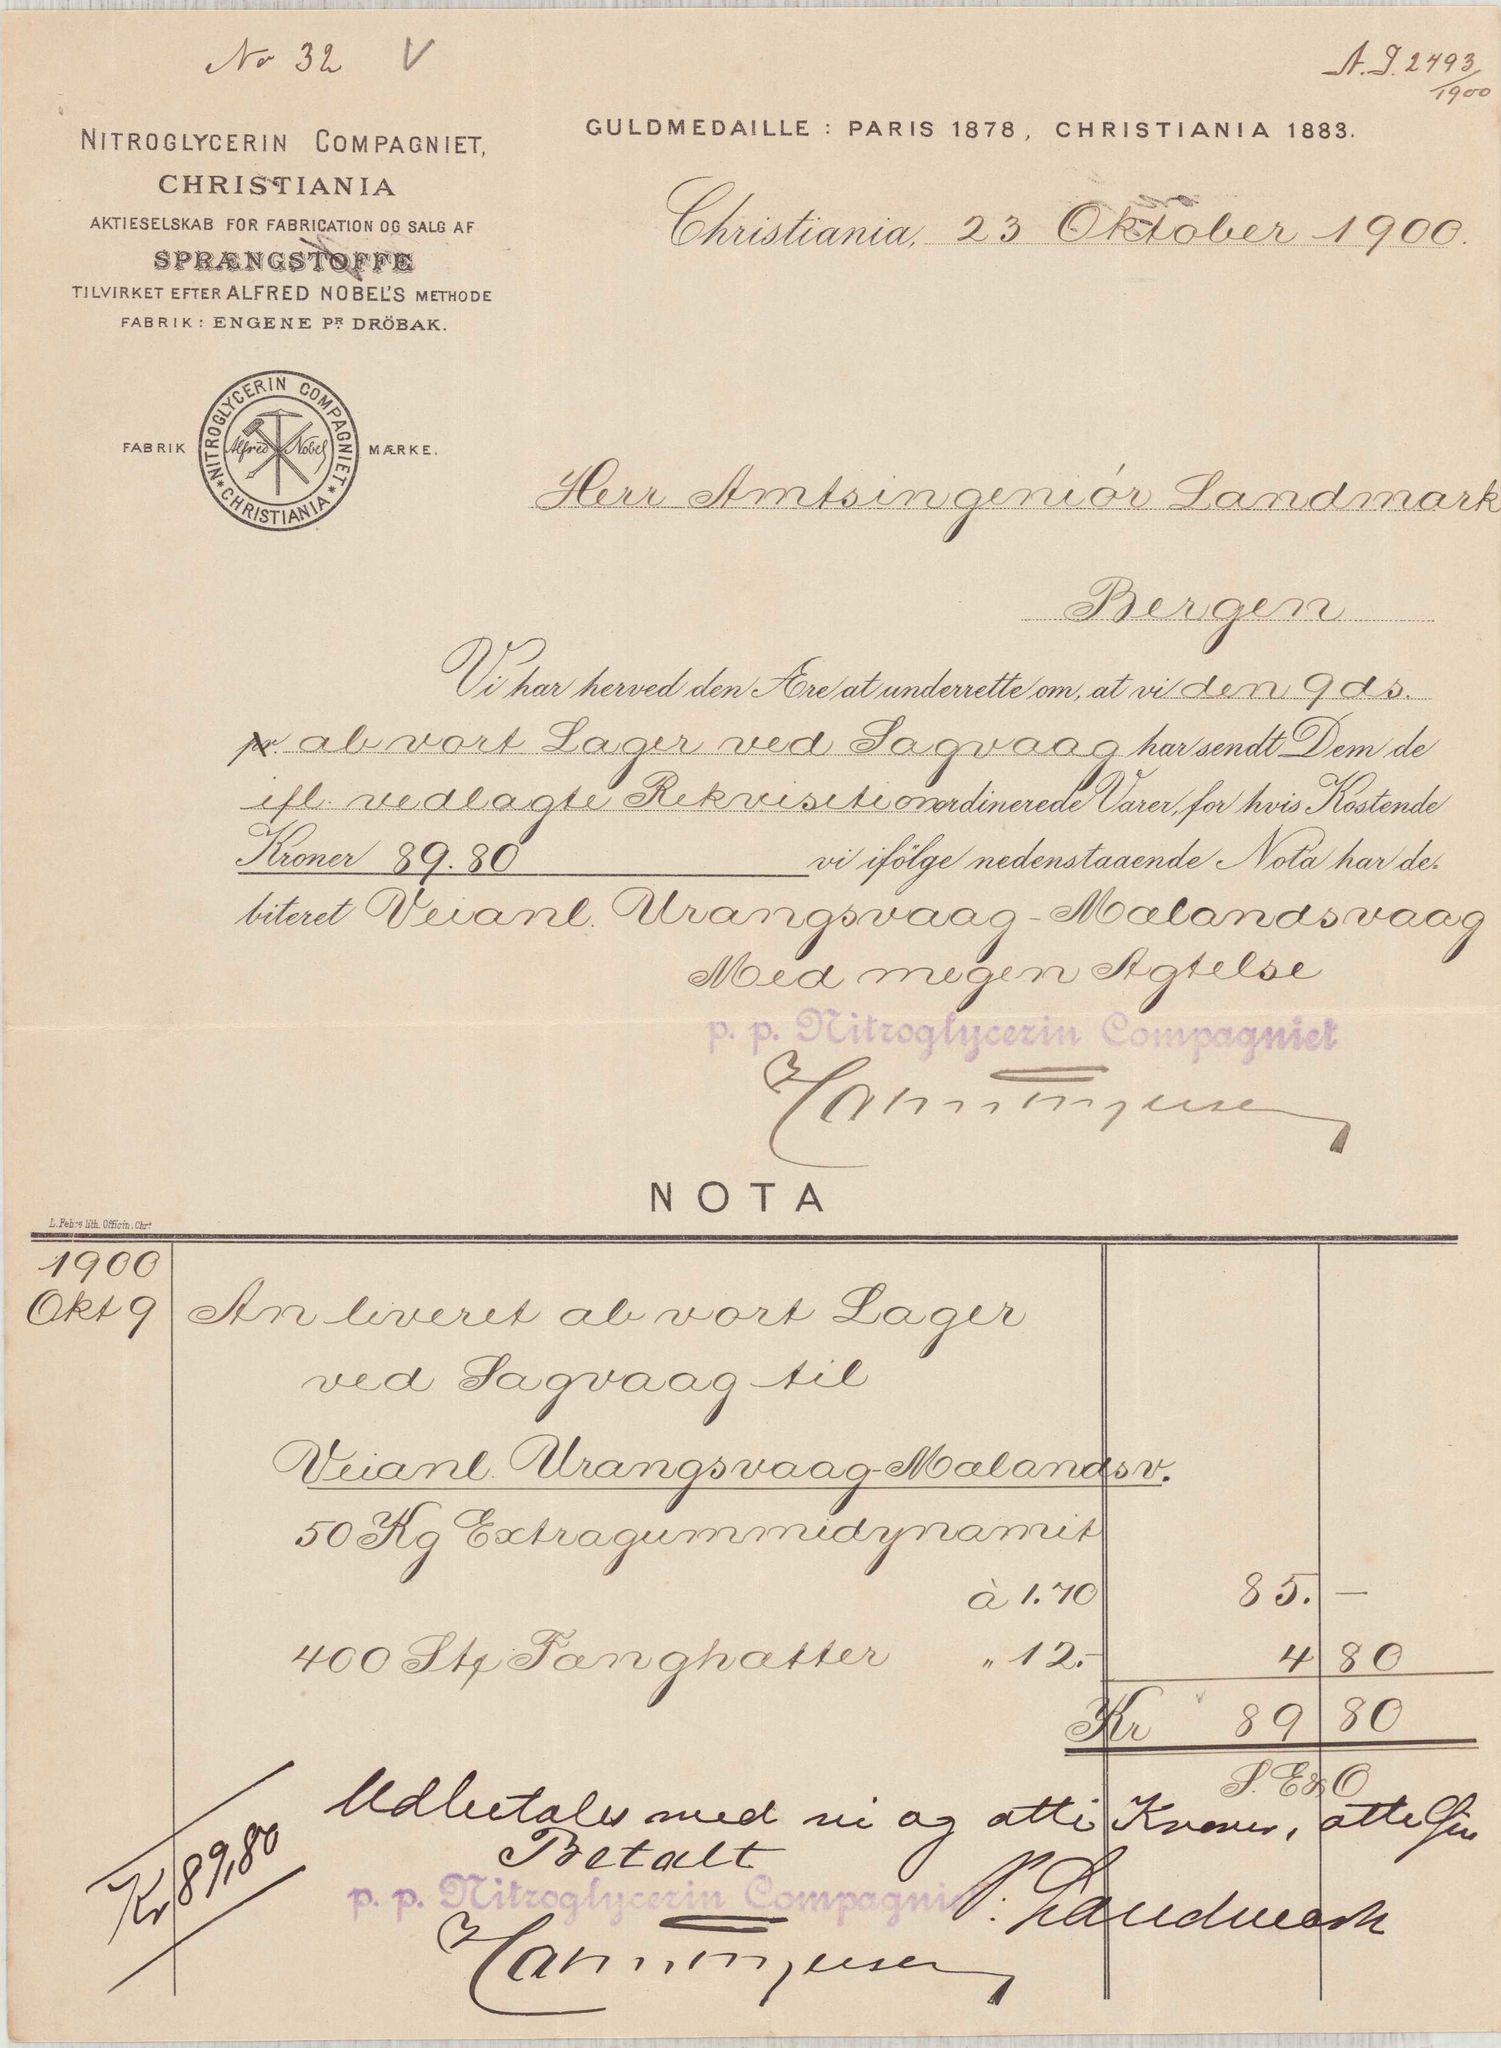 No 32 V
A. J. 2493/1900
NITROGLYCERIN COMPAGNIET,
CHRISTIANIA
AKTIESELSKAB FOR FABRICATION OG SALG AF
SPRÆNGSTOFFE
TILVIRKET EFTER ALFRED NOBEL'S METHODE
FABRIK: ENGENE PR DRÖBAK.
FABRIK MÆRKE.
NITROGLYCERIN COMPAGNIET * CHRISTIANIA *
Alfred Nobel
GULDMEDAILLE: PARIS 1878, CHRISTIANIA 1883.
Christiania, 23 Oktober 1900.
Herr Amtsingeniór Landmark
Bergen
Vi har herved den Ære at underrette om, at vi den 9 ds.
pr. ab vort Lager ved Sagvaag har sendt Dem de
ifl. vedlagte Rekvisition ordinerede Varer, for hvis Kostende
Kroner 89.80 vi ifölge nedenstaaende Nota har de-
biteret Veianl. Urangsvaag-Mælandsvaag
Med megen Agtelse
p. p. Nitroglycerin Compagniet
NOTA
L. Fehrs lith. Officin. Chra
1900
Okt 9 An leveret ab vort Lager
ved Sagvaag til
Veianl. Urangsvaag-Mælandsv.
50 Kg Extragummidynamit
à 1.70 85. —
400 Stk Fænghætter " 12.- 4 80
Kr 89 80
S. E & O
Udbetales med ni og otti Kroner, otti Øre
Kr 89,80
Betalt
p. p. Nitroglycerin Compagni
P. Landmark